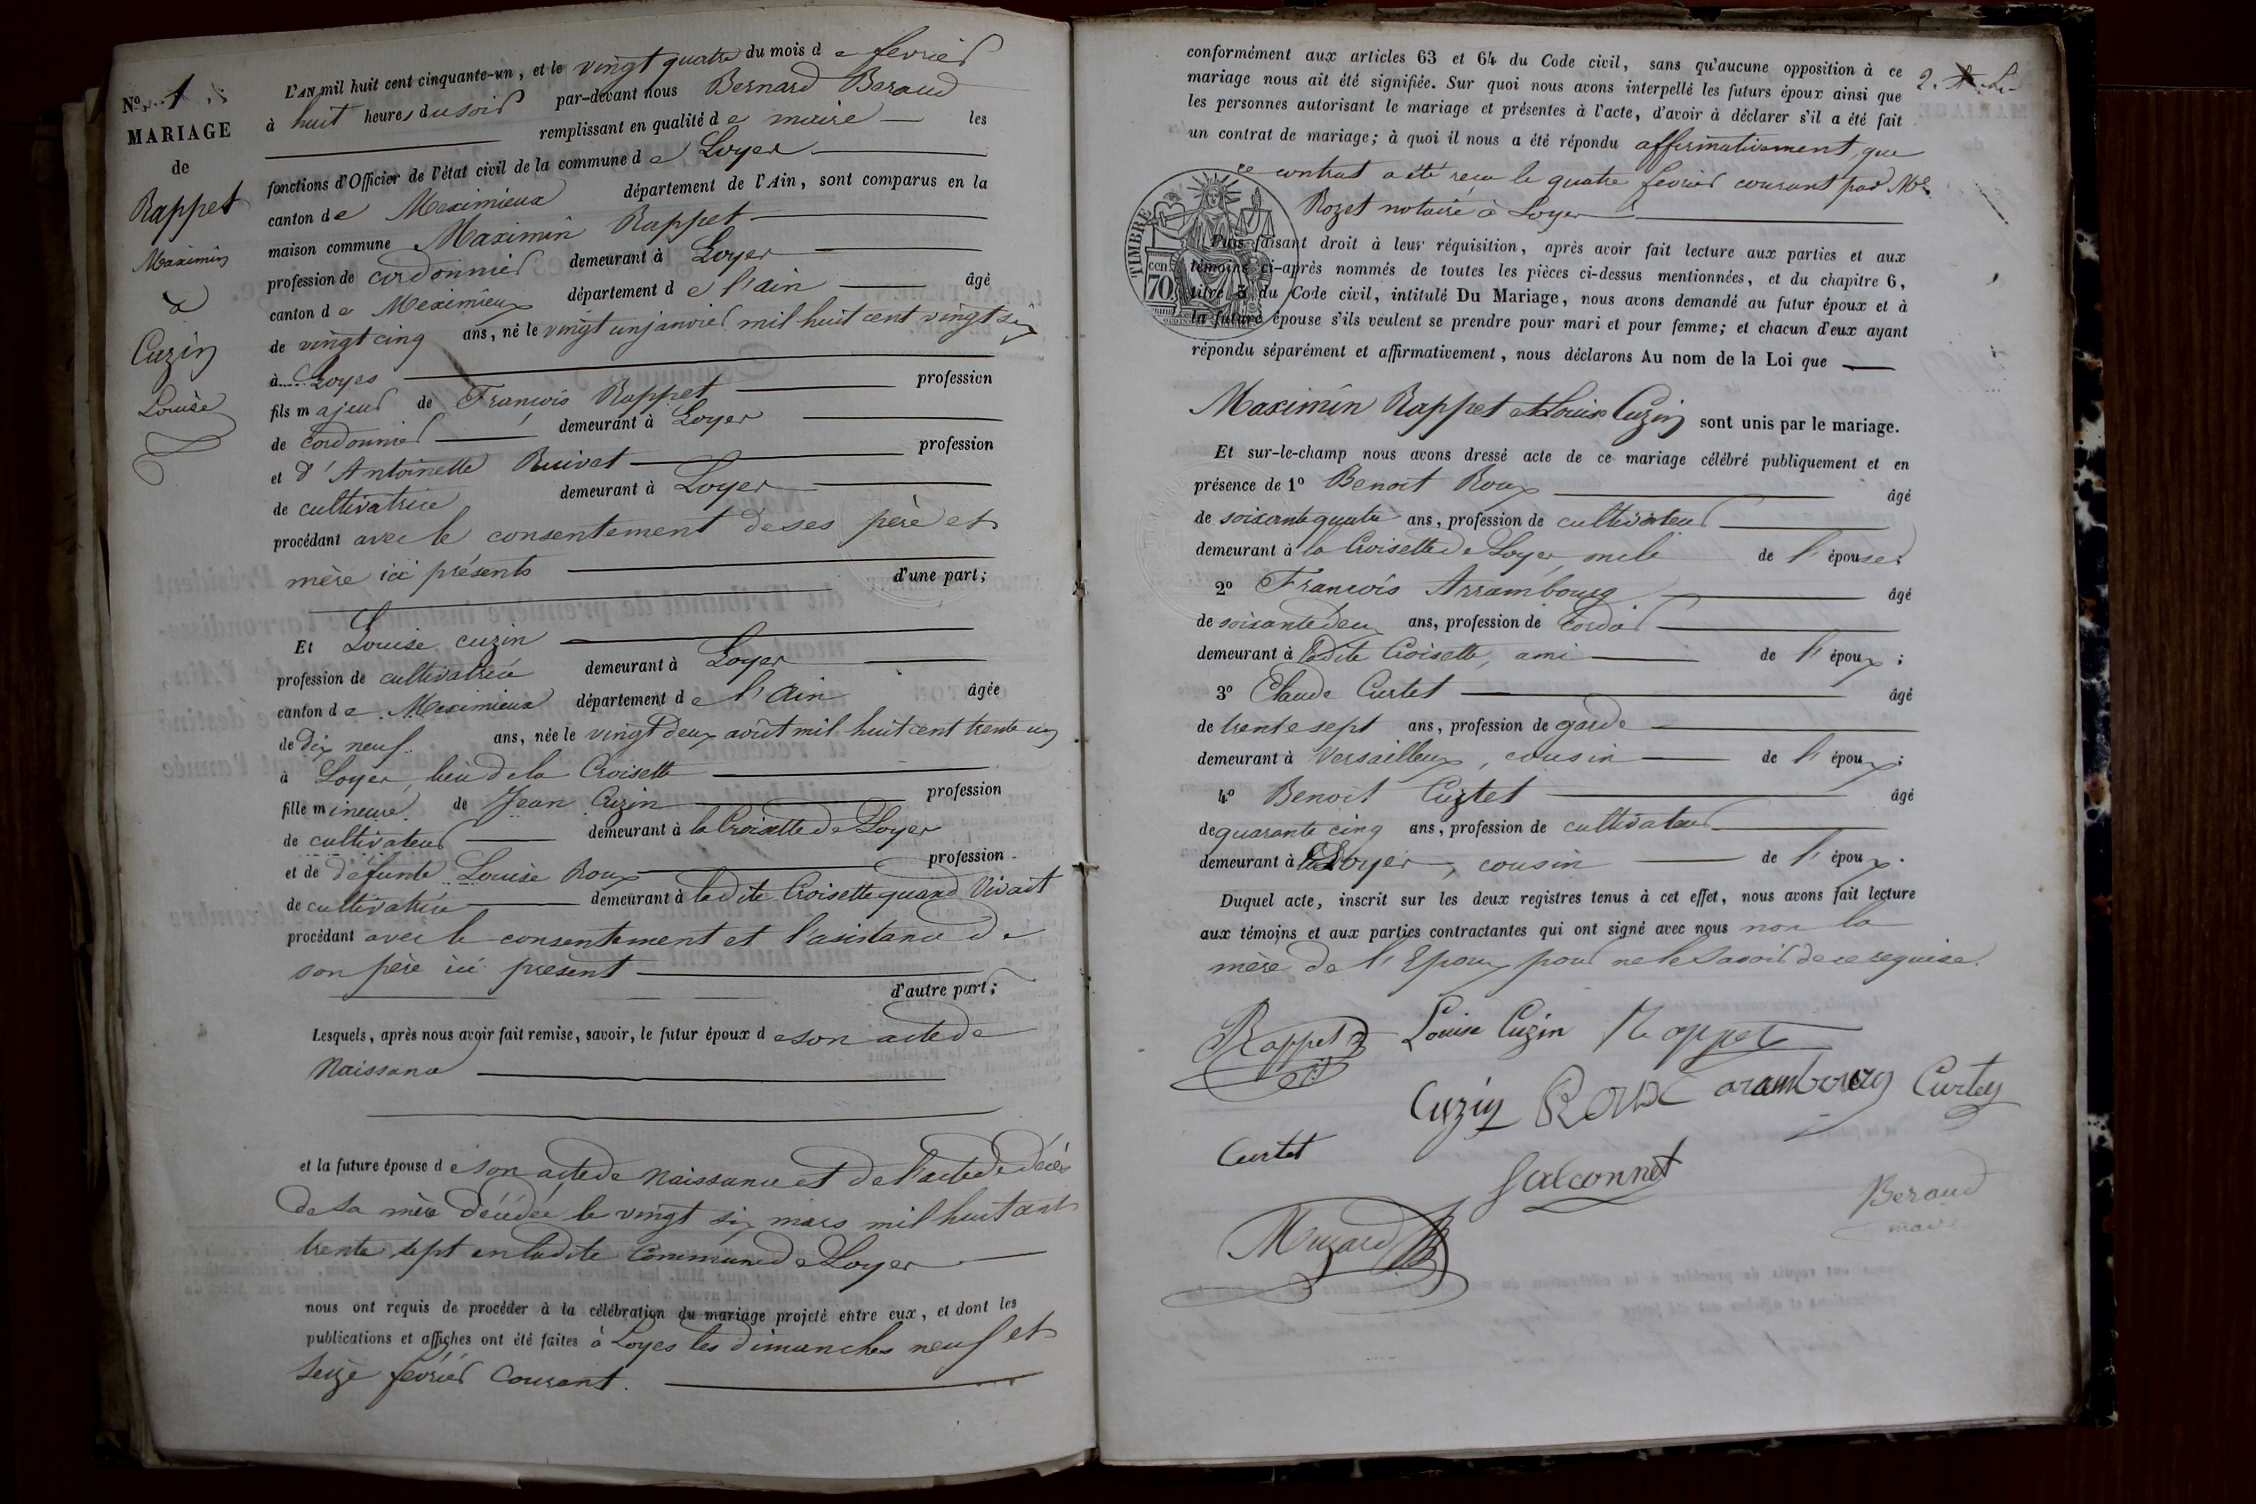 N.º 1
MARIAGE
de
Rappet
Maximin
&
Cuzin
Louise
L'AN mil huit cent cinquante-un, et le vingt quatre du mois de fevrier
à huit heures du soir par-devant nous Bernard Beraud
remplissant en qualité de maire les
fonctions d'Officier de l'état civil de la commune de Loyes
canton de Meximieux département de l'Ain, sont comparus en la
maison commune Maximin Rappet
profession de cordonnier demeurant à Loyes
canton de Meximieux département de l'ain âgé
de vingt cinq ans, né le vingt un janvier mil huit cent vingt six
à Loyes
fils majeur de François Rappet profession
de cordonnier demeurant à Loyes
et d'Antoinette Ruivet profession
de cultivatrice demeurant à Loyes
procédant avec le consentement de ses père et
mère ici présents
d'une part;
Et Louise cuzin
profession de cultivatrice demeurant à Loyes
canton de Meximieux département de l'ain âgée
de dix neuf ans, née le vingt deux août mil huit cent trente un
à Loyes, lieu de la Croisette
fille mineure de Jean Cuzin profession
de cultivateur demeurant à la Croisette de Loyes
et de défunte Louise Roux profession
de cultivatrice demeurant à ladite Croisette quand vivait
procédant avec le consentement et l'asistance de
son père ici présent
d'autre part;
Lesquels, après nous avoir fait remise, savoir, le futur époux de son acte de
Naissance
et la future épouse de son acte de Naissance et de l'acte de décès
de sa mère décédée le vingt six mars mil huit cent
trente sept en ladite Commune de Loyes
nous ont requis de procéder à la célébration du mariage projeté entre eux, et dont les
publications et affiches ont été faites à Loyes les dimanches neuf et
seize février courant.
conformément aux articles 63 et 64 du Code civil, sans qu'aucune opposition à ce
mariage nous ait été signifiée. Sur quoi nous avons interpellé les futurs époux ainsi que
les personnes autorisant le mariage et présentes à l'acte, d'avoir à déclarer s'il a été fait
un contrat de mariage; à quoi il nous a été répondu affirmativement, que
ce contrat a été reçu le quatre fevrier courant par Me
Rozet notaire à Loyes
TIMBRE
70 cen.
Puis faisant droit à leur réquisition, après avoir fait lecture aux parties et aux
témoins ci-après nommés de toutes les pièces ci-dessus mentionnées, et du chapitre 6,
titre 5 du Code civil, intitulé Du Mariage, nous avons demandé au futur époux et à
la future épouse s'ils veulent se prendre pour mari et pour femme; et chacun d'eux ayant
répondu séparément et affirmativement, nous déclarons Au nom de la Loi que
Maximin Rappet et Louise Cuzin sont unis par le mariage.
Et sur-le-champ nous avons dressé acte de ce mariage célébré publiquement et en
présence de 1º Benoit Roux âgé
de soixante quatre ans, profession de cultivateur
demeurant à la Croisette de Loyes de l'épouse
2º François Arrambourg âgé
de soixante deux ans, profession de
demeurant à ladite Croisette, ami de l'époux;
3º Claude Curtet âgé
de trente sept ans, profession de garde
demeurant à Versailleux, cousin de l'époux;
4º Benoit Curtet âgé
de quarante cinq ans, profession de cultivateur
demeurant à Loyes, cousin de l'époux.
Duquel acte, inscrit sur les deux registres tenus à cet effet, nous avons fait lecture
aux témoins et aux parties contractantes qui ont signé avec nous non la
mère de l'Epoux pour ne le savoir de ce requise.
Rappet Louise Cuzin Rappet
Cuzin Roux arambourg Curtet
Curtet
falconnet
Beraud
maire
Muzard